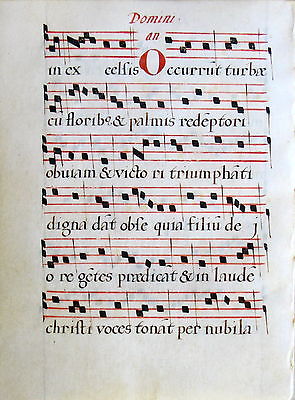 Domini
an
in ex celsis Occurrūt turbæ
cū florib⁹ & palmis redēptori
obuiam & victo ri triumphāti
digna dāt obse quia filiū de j
o re gētes prædicāt & in laude
christi voces tonāt per nubila